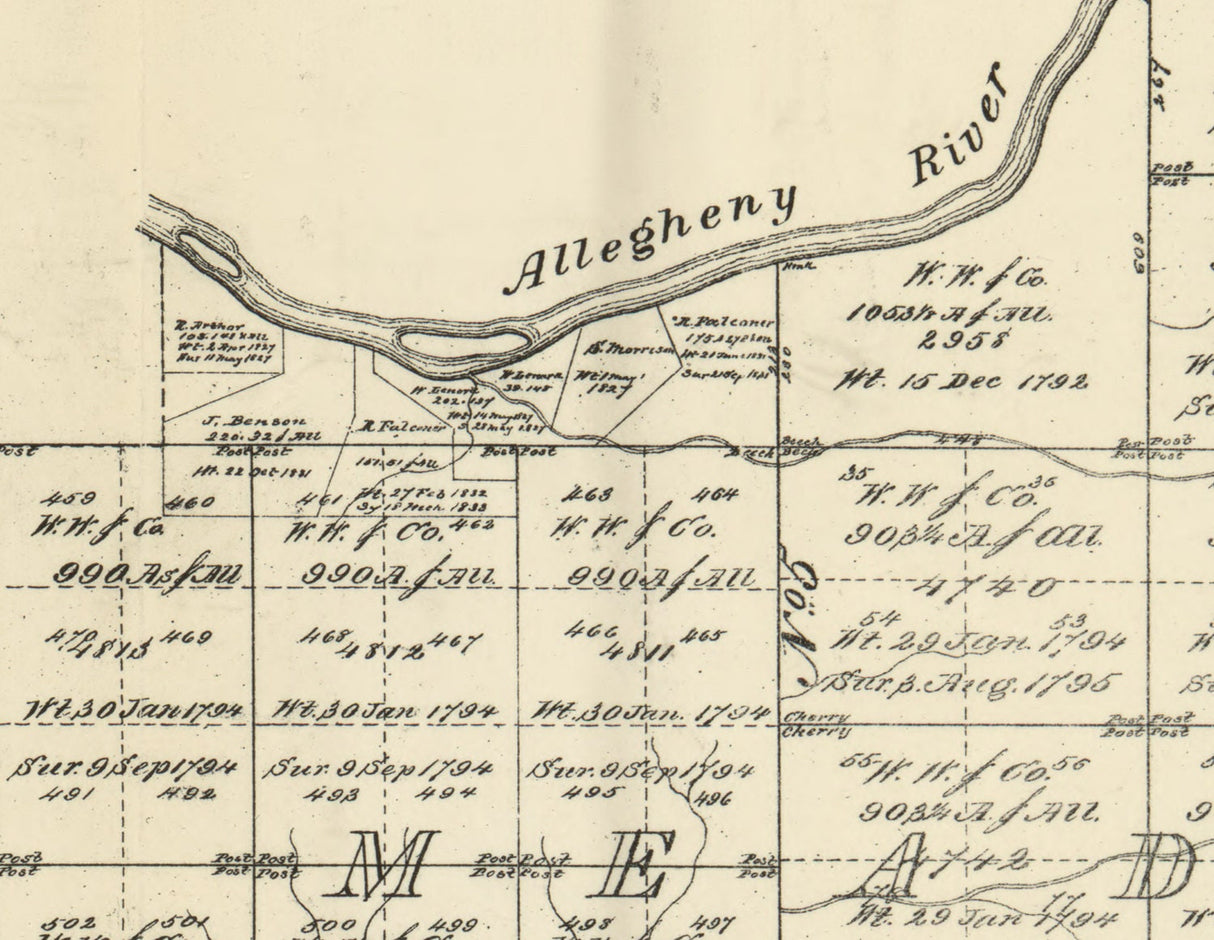 Allegheny River
Post
Post
609
W. W. & Co.
1053½ A & All.
2958
Wt. 15 Dec 1792
R. Arthur
Wt. 2 Apr 1827
Sur 11 May 1827
J. Benson
220. 32 & All
Wt. 22 Oct 1831
R Falconer
151.51 & All
Wt. 27 Feb 1832
Sy 18 Mch 1833
W Lenora
202. 137
Wt 14 May 1827
S 28 May 1827
W Lenora
39. 148
S. Morrison
Wt 1 May
1827
R. Falconer
Post
Post Post
Post Post
Beech
Beech
Beech
Post
Post Post
459
460
W. W. & Co.
990 As & All
470
469
4813
Wt 30 Jan 1794
Sur. 9 Sep 1794
491
492
461
462
W. W. & Co.
990 A. & All.
468
467
4812
Wt. 30 Jan 1794
Sur. 9 Sep 1794
493
494
463
464
W. W. & Co.
990 A & All
466
465
4811
Wt. 30 Jan. 1794
Sur. 9 Sep 1794
495
496
35
36
W. W & Co.
903¼ A. & All.
4740
54
53
Wt. 29 Jan. 1794
Sur. 3. Aug. 1795
Cherry
Cherry
Post Post
Post Post
55
56
W. W. & Co.
903¼ A. & All.
4742
Wt. 29 Jan 1794
77
Post
Post
Post Post
Post Post
Post Post
Post Post
Post
Post
M E A D
502
501
500
499
498
497